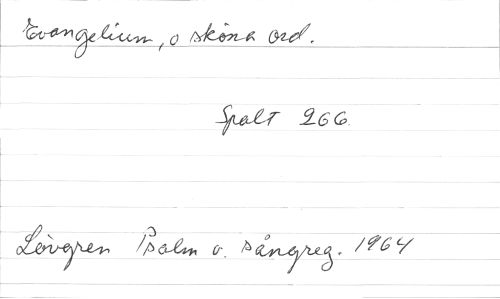 Evangelium, o sköna ord.
Spalt 266
Lövgren Psalm o. sångreg. 1964